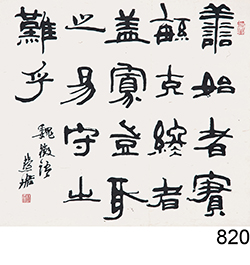 善始者實
繁克終者
蓋寡豈取
之易守之
難乎
魏徵語
820